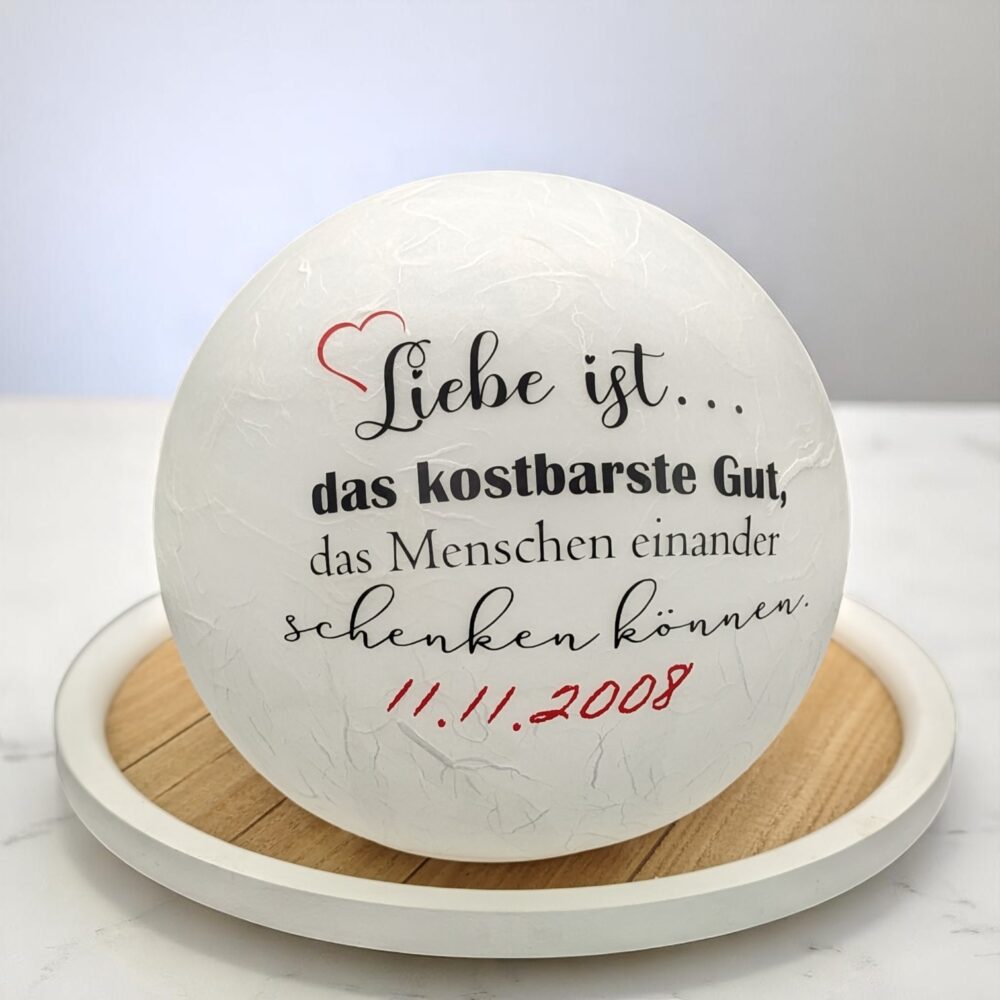 Liebe ist...
das kostbarste Gut,
das Menschen einander
schenken können.
11.11.2008